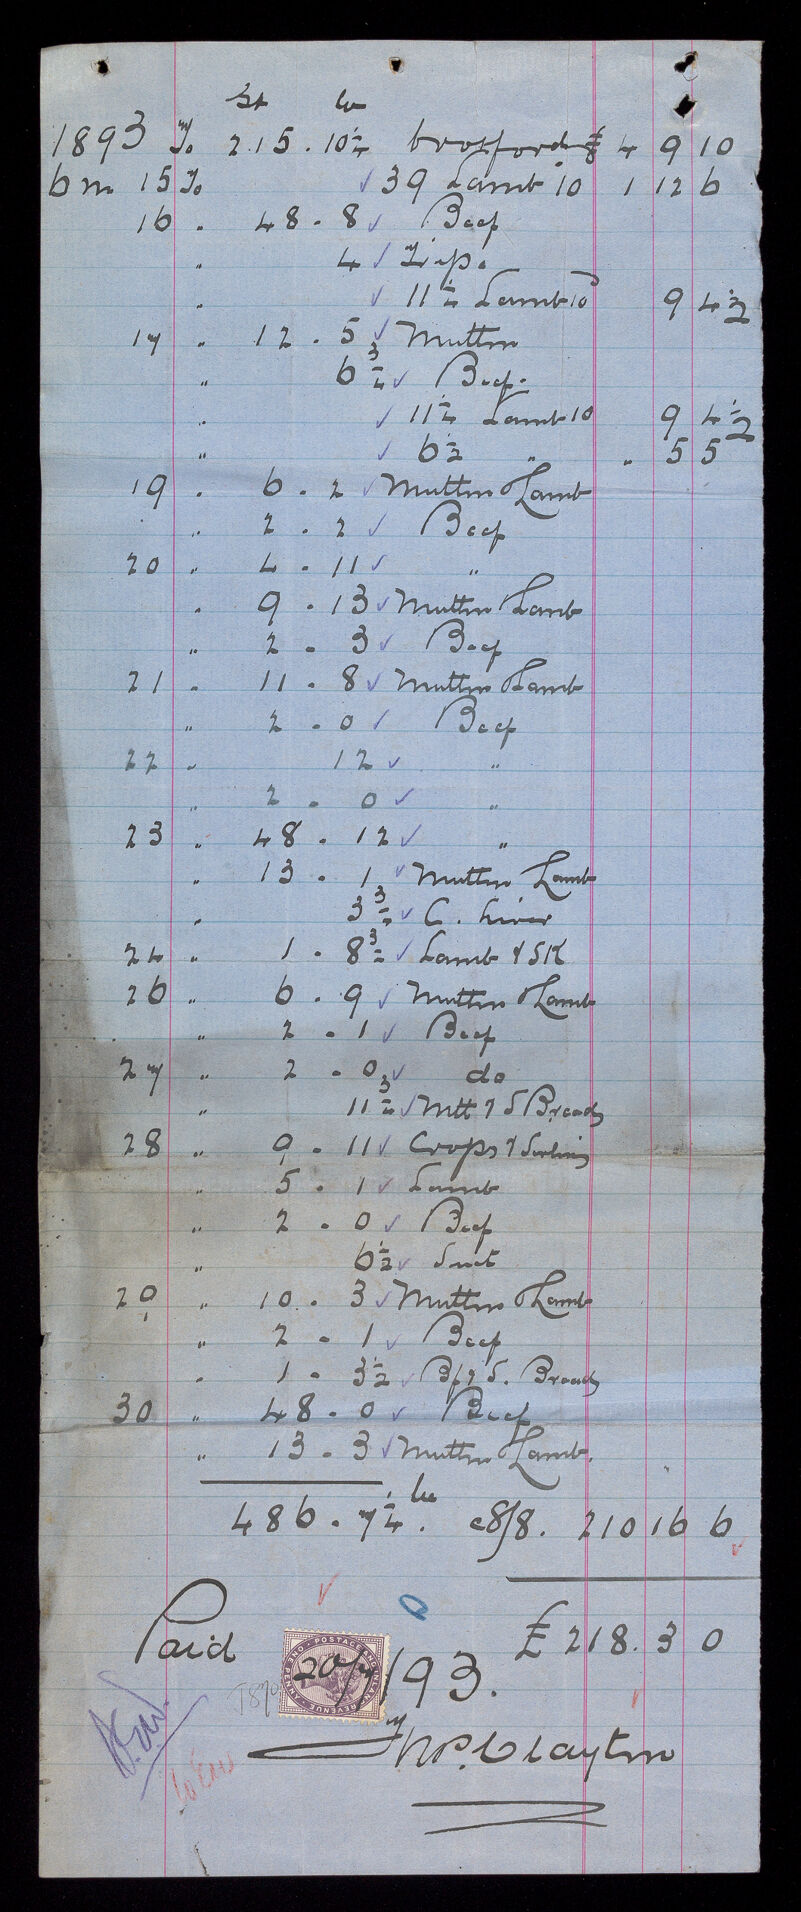 St lb
1893 To 215 . 10 1/4 brot forwd £ 4 9 10
6 mo 15 To 39 Lamb 10 1 12 6
16 " 48 . 8 Beef
" 4 Tripe
" 11 1/4 Lamb 10 9 4 1/2
17 " 12 . 5 Mutton
" 6 3/4 Beef.
" 11 1/4 Lamb 10 9 4 1/2
" 6 1/2 " " 5 5
19 " 6 . 2 Mutton & Lamb
" 2 . 2 Beef
20 " 4 . 11 "
" 9 . 13 Mutton & Lamb
" 2 . 3 Beef
21 " 11 . 8 Mutton & Lamb
" 2 . 0 Beef
22 " 12 "
" 2 . 0 "
23 " 48 . 12 "
" 13 . 1 Mutton & Lamb
" 3 3/4 C. Liver
24 " 1 . 8 3/4 Lamb & SK
26 " 6 . 9 Mutton & Lamb
" 2 . 1 Beef
27 " 2 . 0 do
" 11 3/4 Mtt & S Breads
28 " 9 . 11 Crops & Surloin
" 5 . 1 Lamb
" 2 . 0 Beef
" 6 1/2 Suet
29 " 10 . 3 Mutton & Lamb
" 2 . 1 Beef
" 1 . 3 1/2 Bf & S. Breads
30 " 48 . 0 Beef
" 13 . 3 Mutton & Lamb.
486 . 7 1/4 lbs @ 8/8. 210 16 6
£ 218 . 3 0
Paid
POSTAGE AND INLAND REVENUE ONE PENNY
20/7/93.
Thos. P. Clayton